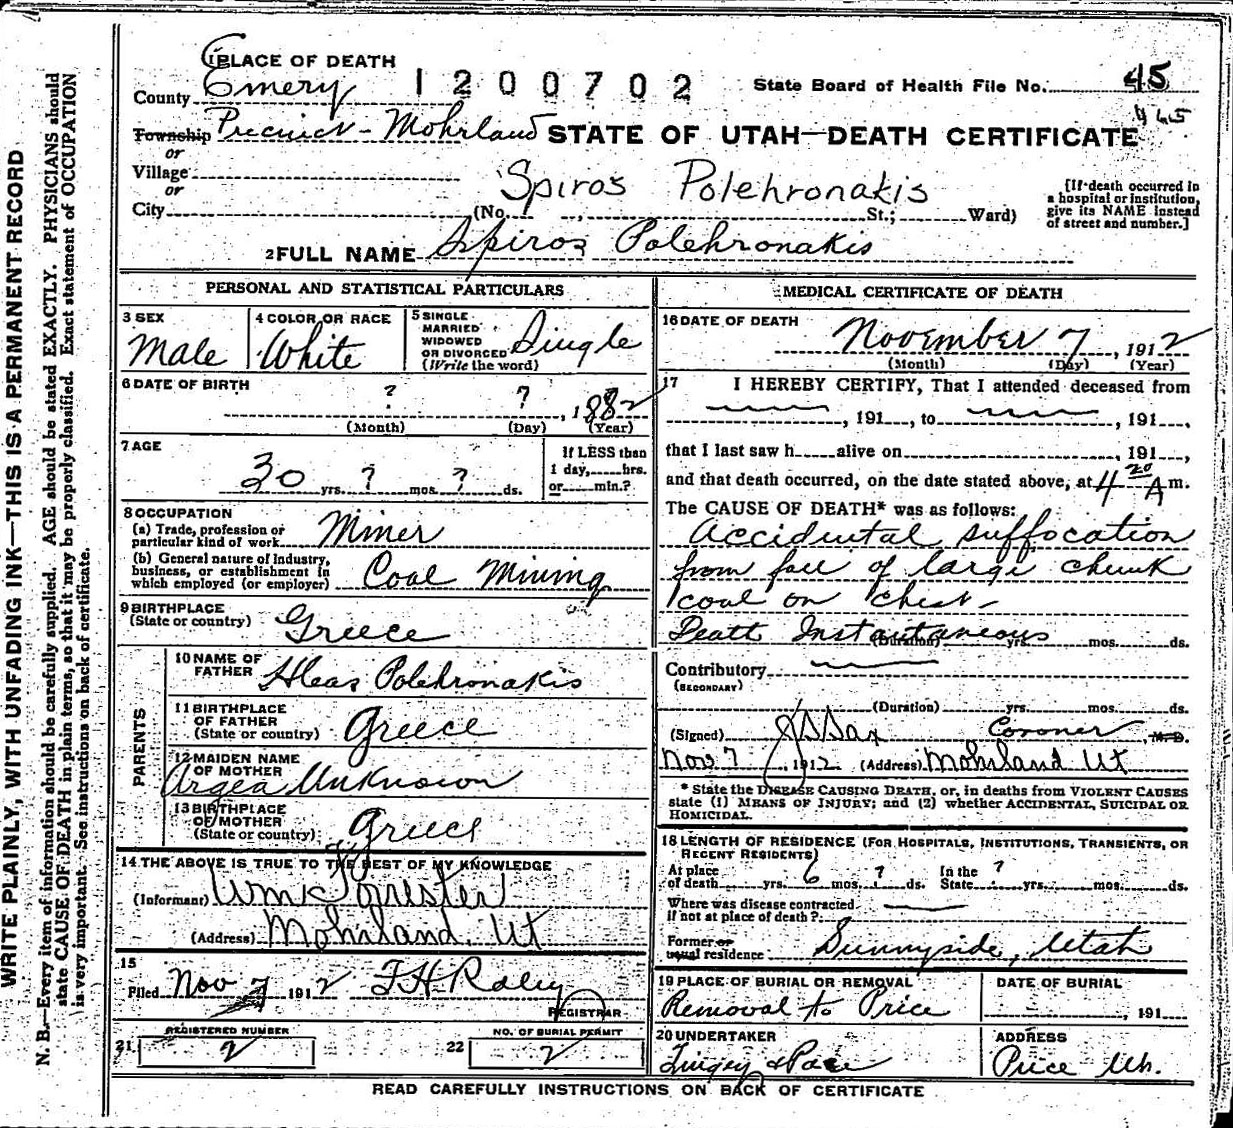 WRITE PLAINLY, WITH UNFADING INK—THIS IS A PERMANENT RECORD
N. B.—Every item of information should be carefully supplied. AGE should be stated EXACTLY. PHYSICIANS should
state CAUSE OF DEATH in plain terms, so that it may be properly classified. Exact statement of OCCUPATION
is very important. See instructions on back of certificate.
1 PLACE OF DEATH
County Emery 1200702 State Board of Health File No. 45
465
Township Precinct - Mohrland STATE OF UTAH—DEATH CERTIFICATE
or
Village
or
Spiros Polehronakis
City (No. , St.; Ward)
[If death occurred in
a hospital or institution,
give its NAME instead
of street and number.]
2 FULL NAME Spiros Polehronakis
PERSONAL AND STATISTICAL PARTICULARS
3 SEX
Male
4 COLOR OR RACE
White
5 SINGLE
MARRIED
WIDOWED
OR DIVORCED
(Write the word)
Single
6 DATE OF BIRTH
? ? , 1882
(Month) (Day) (Year)
7 AGE
30 yrs. ? mos. ? ds.
If LESS than
1 day, hrs.
or min.?
8 OCCUPATION
(a) Trade, profession or
particular kind of work Miner
(b) General nature of industry,
business, or establishment in
which employed (or employer) Coal Mining
9 BIRTHPLACE
(State or country) Greece
PARENTS
10 NAME OF
FATHER Aleas Polehronakis
11 BIRTHPLACE
OF FATHER
(State or country) Greece
12 MAIDEN NAME
OF MOTHER
Argea Unknown
13 BIRTHPLACE
OF MOTHER
(State or country) Greece
14 THE ABOVE IS TRUE TO THE BEST OF MY KNOWLEDGE
(Informant) Wm Forrester
(Address) Mohrland, Ut
15
Filed Nov 7 1912 F H Raley
REGISTRAR
21 REGISTERED NUMBER
2
22 NO. OF BURIAL PERMIT
2
MEDICAL CERTIFICATE OF DEATH
16 DATE OF DEATH
November 7, 1912
(Month) (Day) (Year)
17 I HEREBY CERTIFY, That I attended deceased from
, 191 , to , 191 ,
that I last saw h alive on , 191 ,
and that death occurred, on the date stated above, at 4 20 A m.
The CAUSE OF DEATH* was as follows:
Accidental suffocation
from fall of large chunk
coal on chest -
Death Instantaneous
(Duration) yrs. mos. ds.
Contributory
(SECONDARY)
(Duration) yrs. mos. ds.
(Signed) Coroner, M. D.
Nov 7, 1912 (Address) Mohrland Ut
* State the DISEASE CAUSING DEATH, or, in deaths from VIOLENT CAUSES
state (1) MEANS OF INJURY; and (2) whether ACCIDENTAL, SUICIDAL OR
HOMICIDAL.
18 LENGTH OF RESIDENCE (FOR HOSPITALS, INSTITUTIONS, TRANSIENTS, OR
RECENT RESIDENTS)
At place
of death yrs. 6 mos. ? ds.
In the
State ? yrs. mos. ds.
Where was disease contracted
if not at place of death?
Former or
usual residence Sunnyside, Utah
19 PLACE OF BURIAL OR REMOVAL
Removal to Price
DATE OF BURIAL
, 191
20 UNDERTAKER
ADDRESS
Price Uh.
READ CAREFULLY INSTRUCTIONS ON BACK OF CERTIFICATE